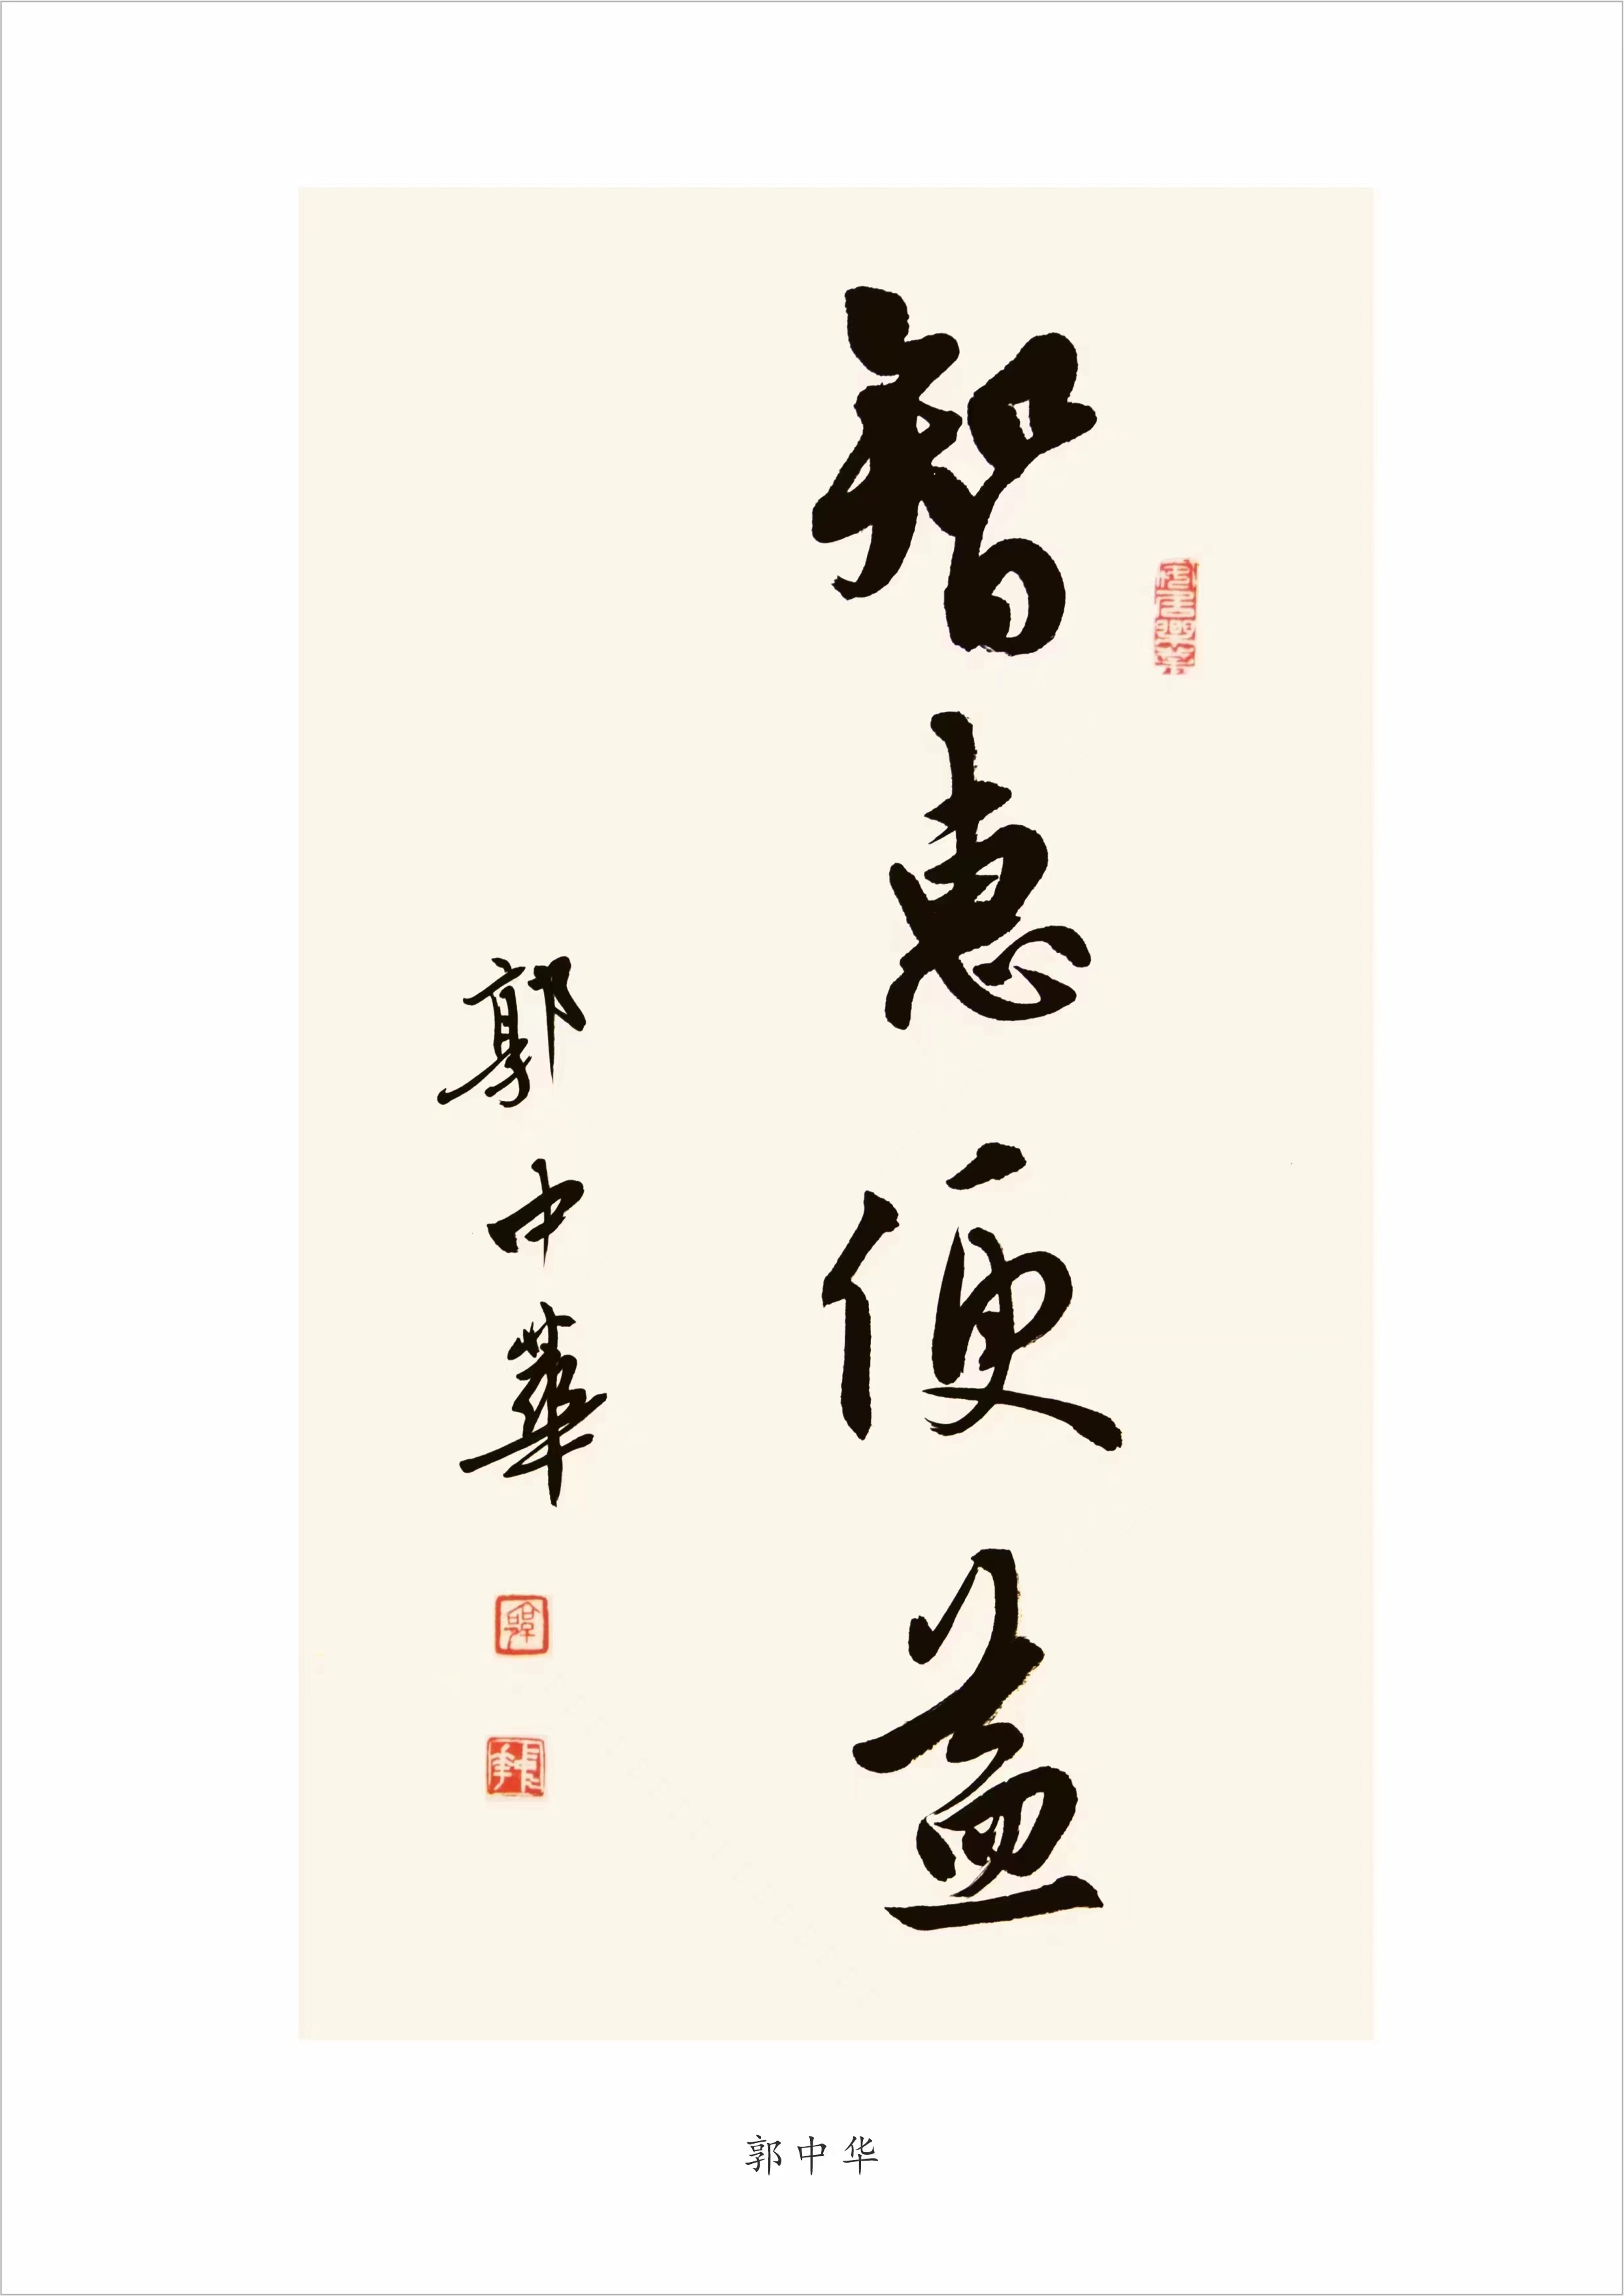 智惠便益
郭中華
郭中华